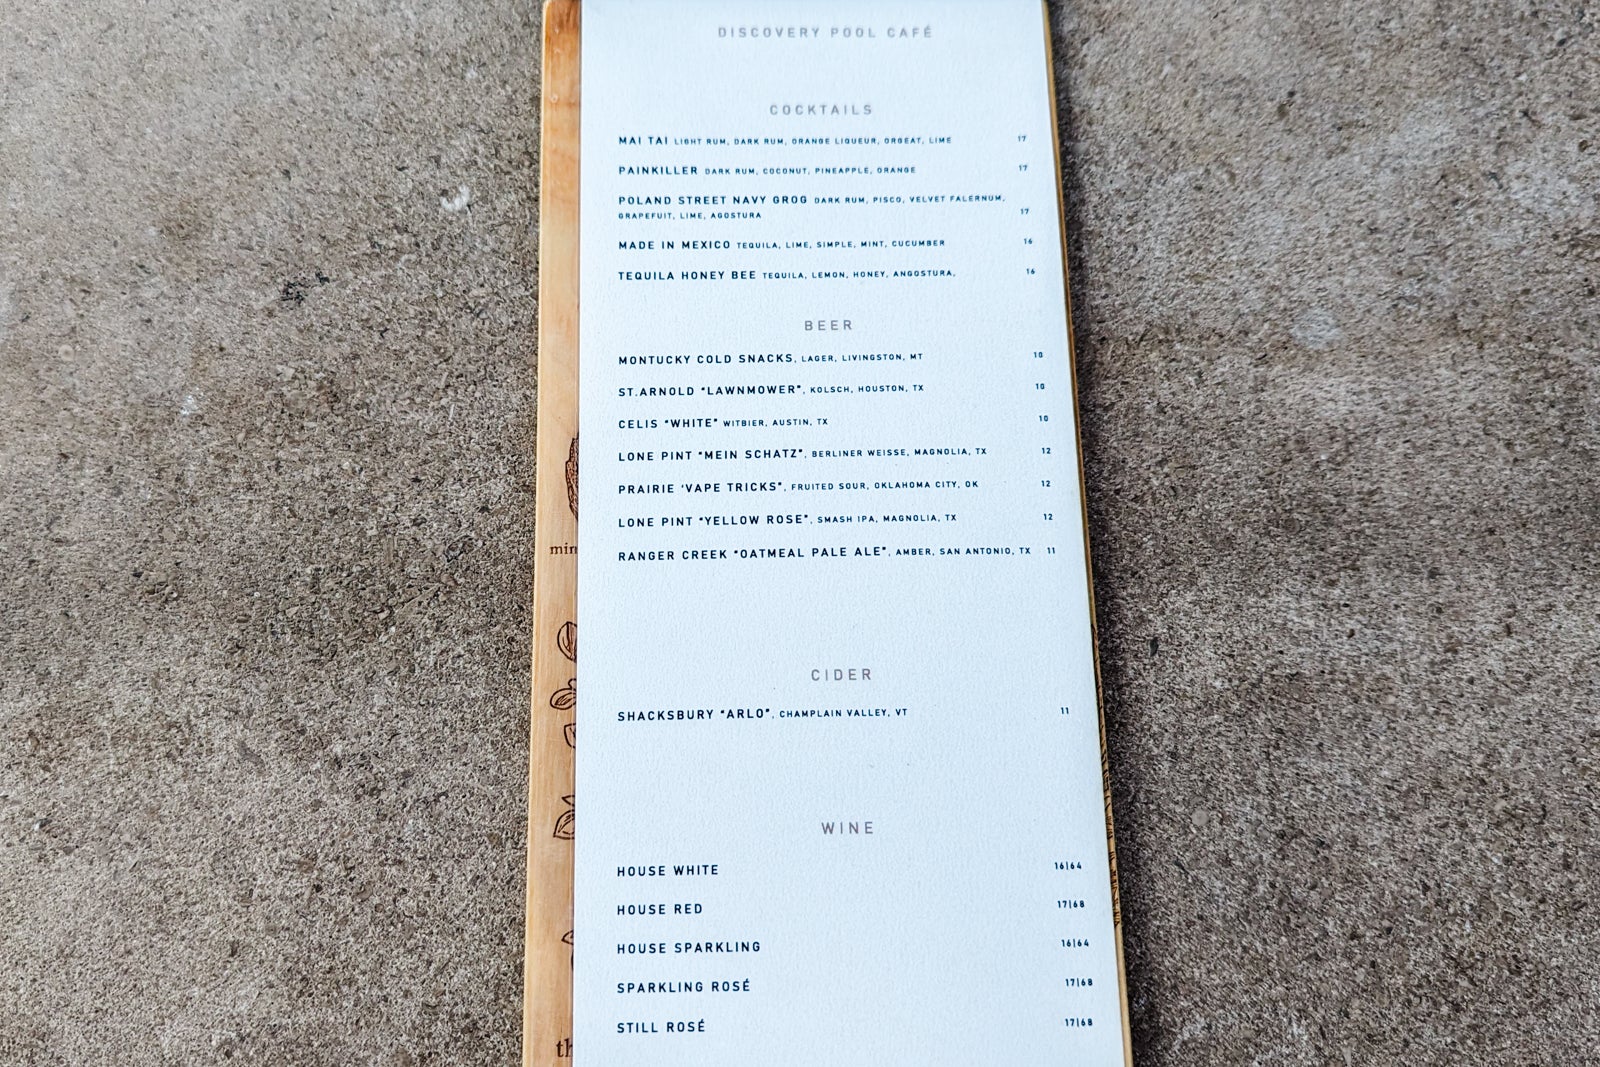 DISCOVERY POOL CAFÉ
COCKTAILS
MAI TAI LIGHT RUM, DARK RUM, ORANGE LIQUEUR, ORGEAT, LIME 17
PAINKILLER DARK RUM, COCONUT, PINEAPPLE, ORANGE 17
POLAND STREET NAVY GROG DARK RUM, PISCO, VELVET FALERNUM,
GRAPEFUIT, LIME, AGOSTURA 17
MADE IN MEXICO TEQUILA, LIME, SIMPLE, MINT, CUCUMBER 16
TEQUILA HONEY BEE TEQUILA, LEMON, HONEY, ANGOSTURA, 16
BEER
MONTUCKY COLD SNACKS, LAGER, LIVINGSTON, MT 10
ST.ARNOLD "LAWNMOWER", KOLSCH, HOUSTON, TX 10
CELIS "WHITE" WITBIER, AUSTIN, TX 10
LONE PINT "MEIN SCHATZ", BERLINER WEISSE, MAGNOLIA, TX 12
PRAIRIE 'VAPE TRICKS", FRUITED SOUR, OKLAHOMA CITY, OK 12
LONE PINT "YELLOW ROSE", SMASH IPA, MAGNOLIA, TX 12
RANGER CREEK "OATMEAL PALE ALE", AMBER, SAN ANTONIO, TX 11
min
CIDER
SHACKSBURY "ARLO", CHAMPLAIN VALLEY, VT 11
WINE
HOUSE WHITE 16|64
HOUSE RED 17|68
HOUSE SPARKLING 16|64
SPARKLING ROSÉ 17|68
STILL ROSÉ 17|68
th